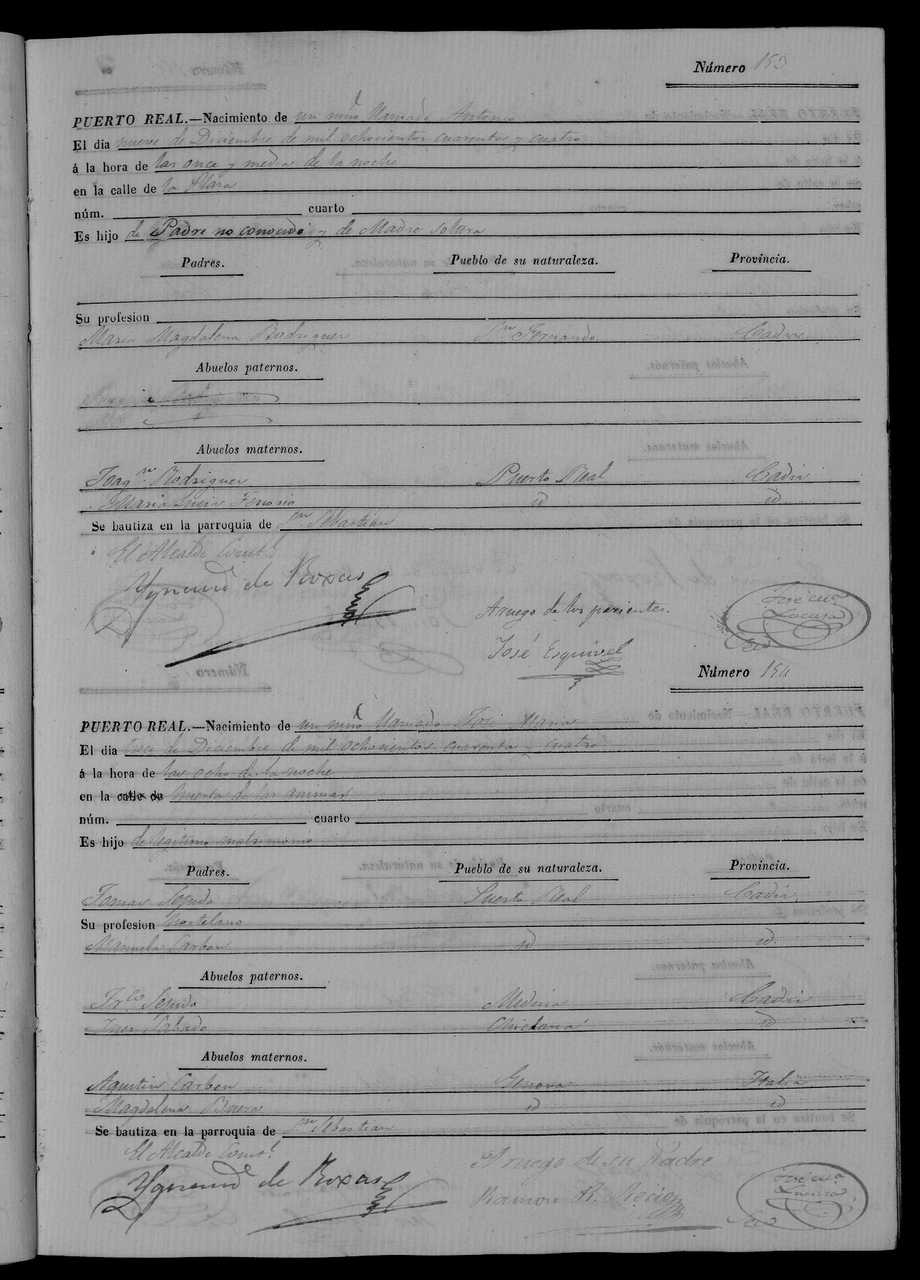 Número 153
PUERTO REAL.—Nacimiento de un niño llamado Antonio
El dia nueve de Diciembre de mil ochocientos cuarenta y cuatro
á la hora de las once y media de la noche
en la calle de la Plaza
núm. cuarto
Es hijo de Padre no conocido y de Madre Soltera
Padres. Pueblo de su naturaleza. Provincia.
Su profesion
Maria Magdalena Rodriguez Sn Fernando Cadiz
Abuelos paternos.
Abuelos maternos.
Joaqn Rodriguez Puerto Real Cadiz
Maria id id
Se bautiza en la parroquia de Sn Sebastian
El Alcalde Constl
de Roxas
A ruego de los parientes.
José Esquivel
Número 154
PUERTO REAL.—Nacimiento de un niño llamado José Maria
El dia de Diciembre de mil ochocientos cuarenta y cuatro
á la hora de las ocho de la noche
en la calle de huerta de las animas
núm. cuarto
Es hijo de legitimo matrimonio
Padres. Pueblo de su naturaleza. Provincia.
Tomas Puerto Real Cadiz
Su profesion Hortelano
Manuela Carbon id id
Abuelos paternos.
Frco Medina Cadiz
Chiclana id
Abuelos maternos.
Agustin Carbon Genova Italia
Magdalena id id
Se bautiza en la parroquia de Sn Sebastian
El Alcalde Constl
de Roxas
A ruego de su Padre
Ramon R.